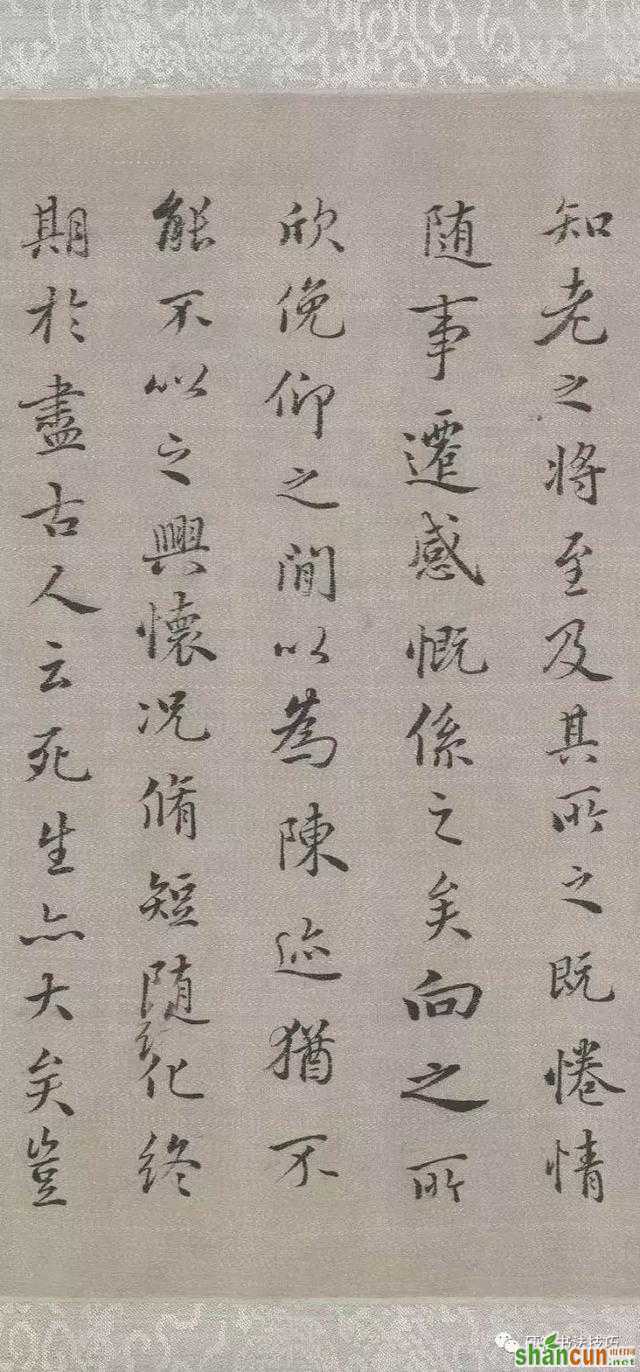 知老之将至及其所之既惓情
随事遷感慨係之矣向之所
欣俛仰之間以為陳迹猶不
能不以之興懷况脩短随化終
期於盡古人云死生亦大矣豈
书法技巧
shancun.net